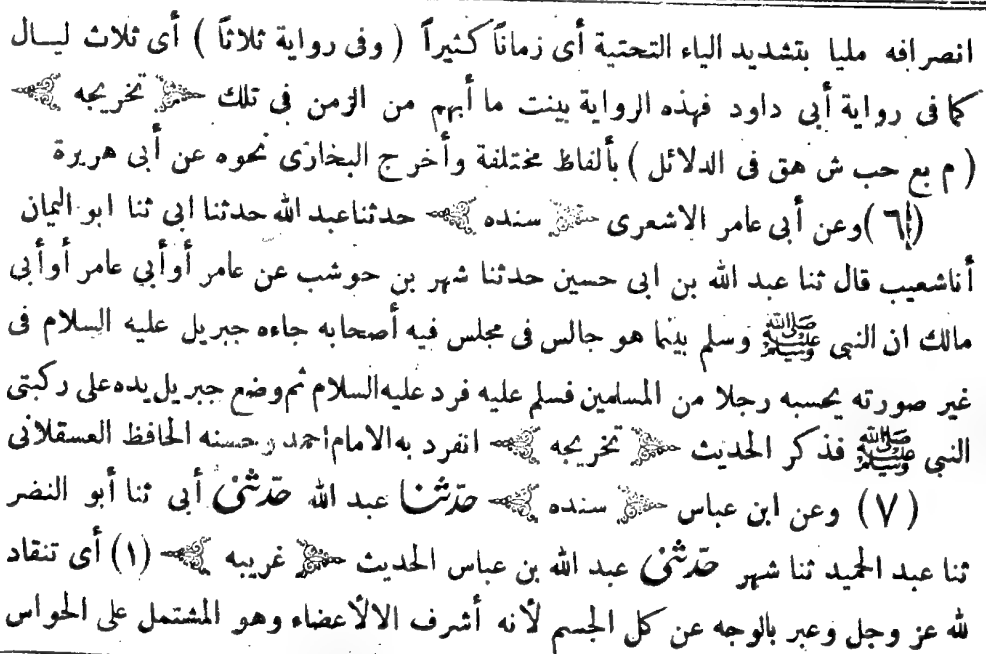 انصرافه مليا بتشديد الياء التحتية أى زماناً كثيراً ( وفى رواية ثلاثاً ) أى ثلاث ليــال
كما فى رواية أبى داود فهذه الرواية بينت ما أبهم من الزمن فى تلك تخريجه
( م بع حب ش هق فى الدلائل ) بألفاظ مختلفة وأخرج البخارى نحوه عن أبى هريرة
(٦) وعن أبى عامر الاشعرى سنده حدثنا عبد الله حدثنا ابى ثنا ابو اليمان
أنا شعيب قال ثنا عبد الله بن ابى حسين حدثنا شهر بن حوشب عن عامر أو أبي عامر أو أبى
مالك ان النبى ﷺ وسلم بينما هو جالس فى مجلس فيه أصحابه جاءه جبريل عليه السلام فى
غير صورته يحسبه رجلا من المسلمين فسلم عليه فرد عليه السلام ثم وضع جبريل يده على ركبتى
النبي ﷺ فذكر الحديث تخريجه انفرد به الامام احمد وحسنه الحافظ العسقلانى
(٧) وعن ابن عباس سنده حدّثنــا عبد الله حدّثنى أبى ثنا أبو النضر
ثنا عبد الحميد ثنا شهر حدّثنى عبد الله بن عباس الحديث غريبه (١) أى تنقاد
لله عز وجل وعبر بالوجه عن كل الجسم لأنه أشرف الالأعضاء وهو المشتمل على الحواس